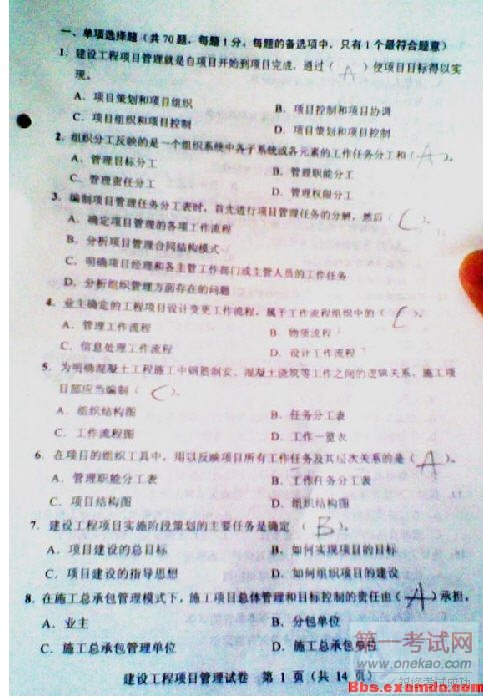 一、单项选择题（共 70 题，每题 1 分，每题的备选项中，只有 1 个最符合题意）
1. 建设工程项目管理就是自项目开始到项目完成，通过（ A ）使项目目标得以实
现。
A. 项目策划和项目组织 B. 项目控制和项目协调
C. 项目组织和项目控制 D. 项目策划和项目控制
2. 组织分工反映的是一个组织系统中各子系统或各元素的工作任务分工和（ A ）。
A. 管理目标分工 B. 管理职能分工
C. 管理责任分工 D. 管理权限分工
3. 编制项目管理任务分工表时，首先进行项目管理任务的分解，然后（ C ）。
A. 确定项目管理的各项工作流程
B. 分析项目管理合同结构模式
C. 明确项目经理和各主管工作部门或主管人员的工作任务
D. 分析组织管理方面存在的问题
4. 业主确定的工程项目设计变更工作流程，属于工作流程组织中的（ C ）。
A. 管理工作流程 B. 物资流程
C. 信息处理工作流程 D. 设计工作流程
5. 为明确混凝土工程施工中钢筋制安、混凝土浇筑等工作之间的逻辑关系，施工项
目部应当编制（ C ）。
A. 组织结构图 B. 任务分工表
C. 工作流程图 D. 工作一览表
6. 在项目的组织工具中，用以反映项目所有工作任务及其层次关系的是（ A ）。
A. 管理职能分工表 B. 工作任务分工表
C. 项目结构图 D. 组织结构图
7. 建设工程项目实施阶段策划的主要任务是确定（ B ）。
A. 项目建设的总目标 B. 如何实现项目的目标
C. 项目建设的指导思想 D. 如何组织项目的建设
8. 在施工总承包管理模式下，施工项目总体管理和目标控制的责任由（ A ）承担。
A. 业主 B. 分包单位
C. 施工总承包管理单位 D. 施工总承包单位
第一考试网
www.onekao.com
建设工程项目管理试卷 第 1 页（共 14 页）
祝您考试成功
Bbs.examda.com